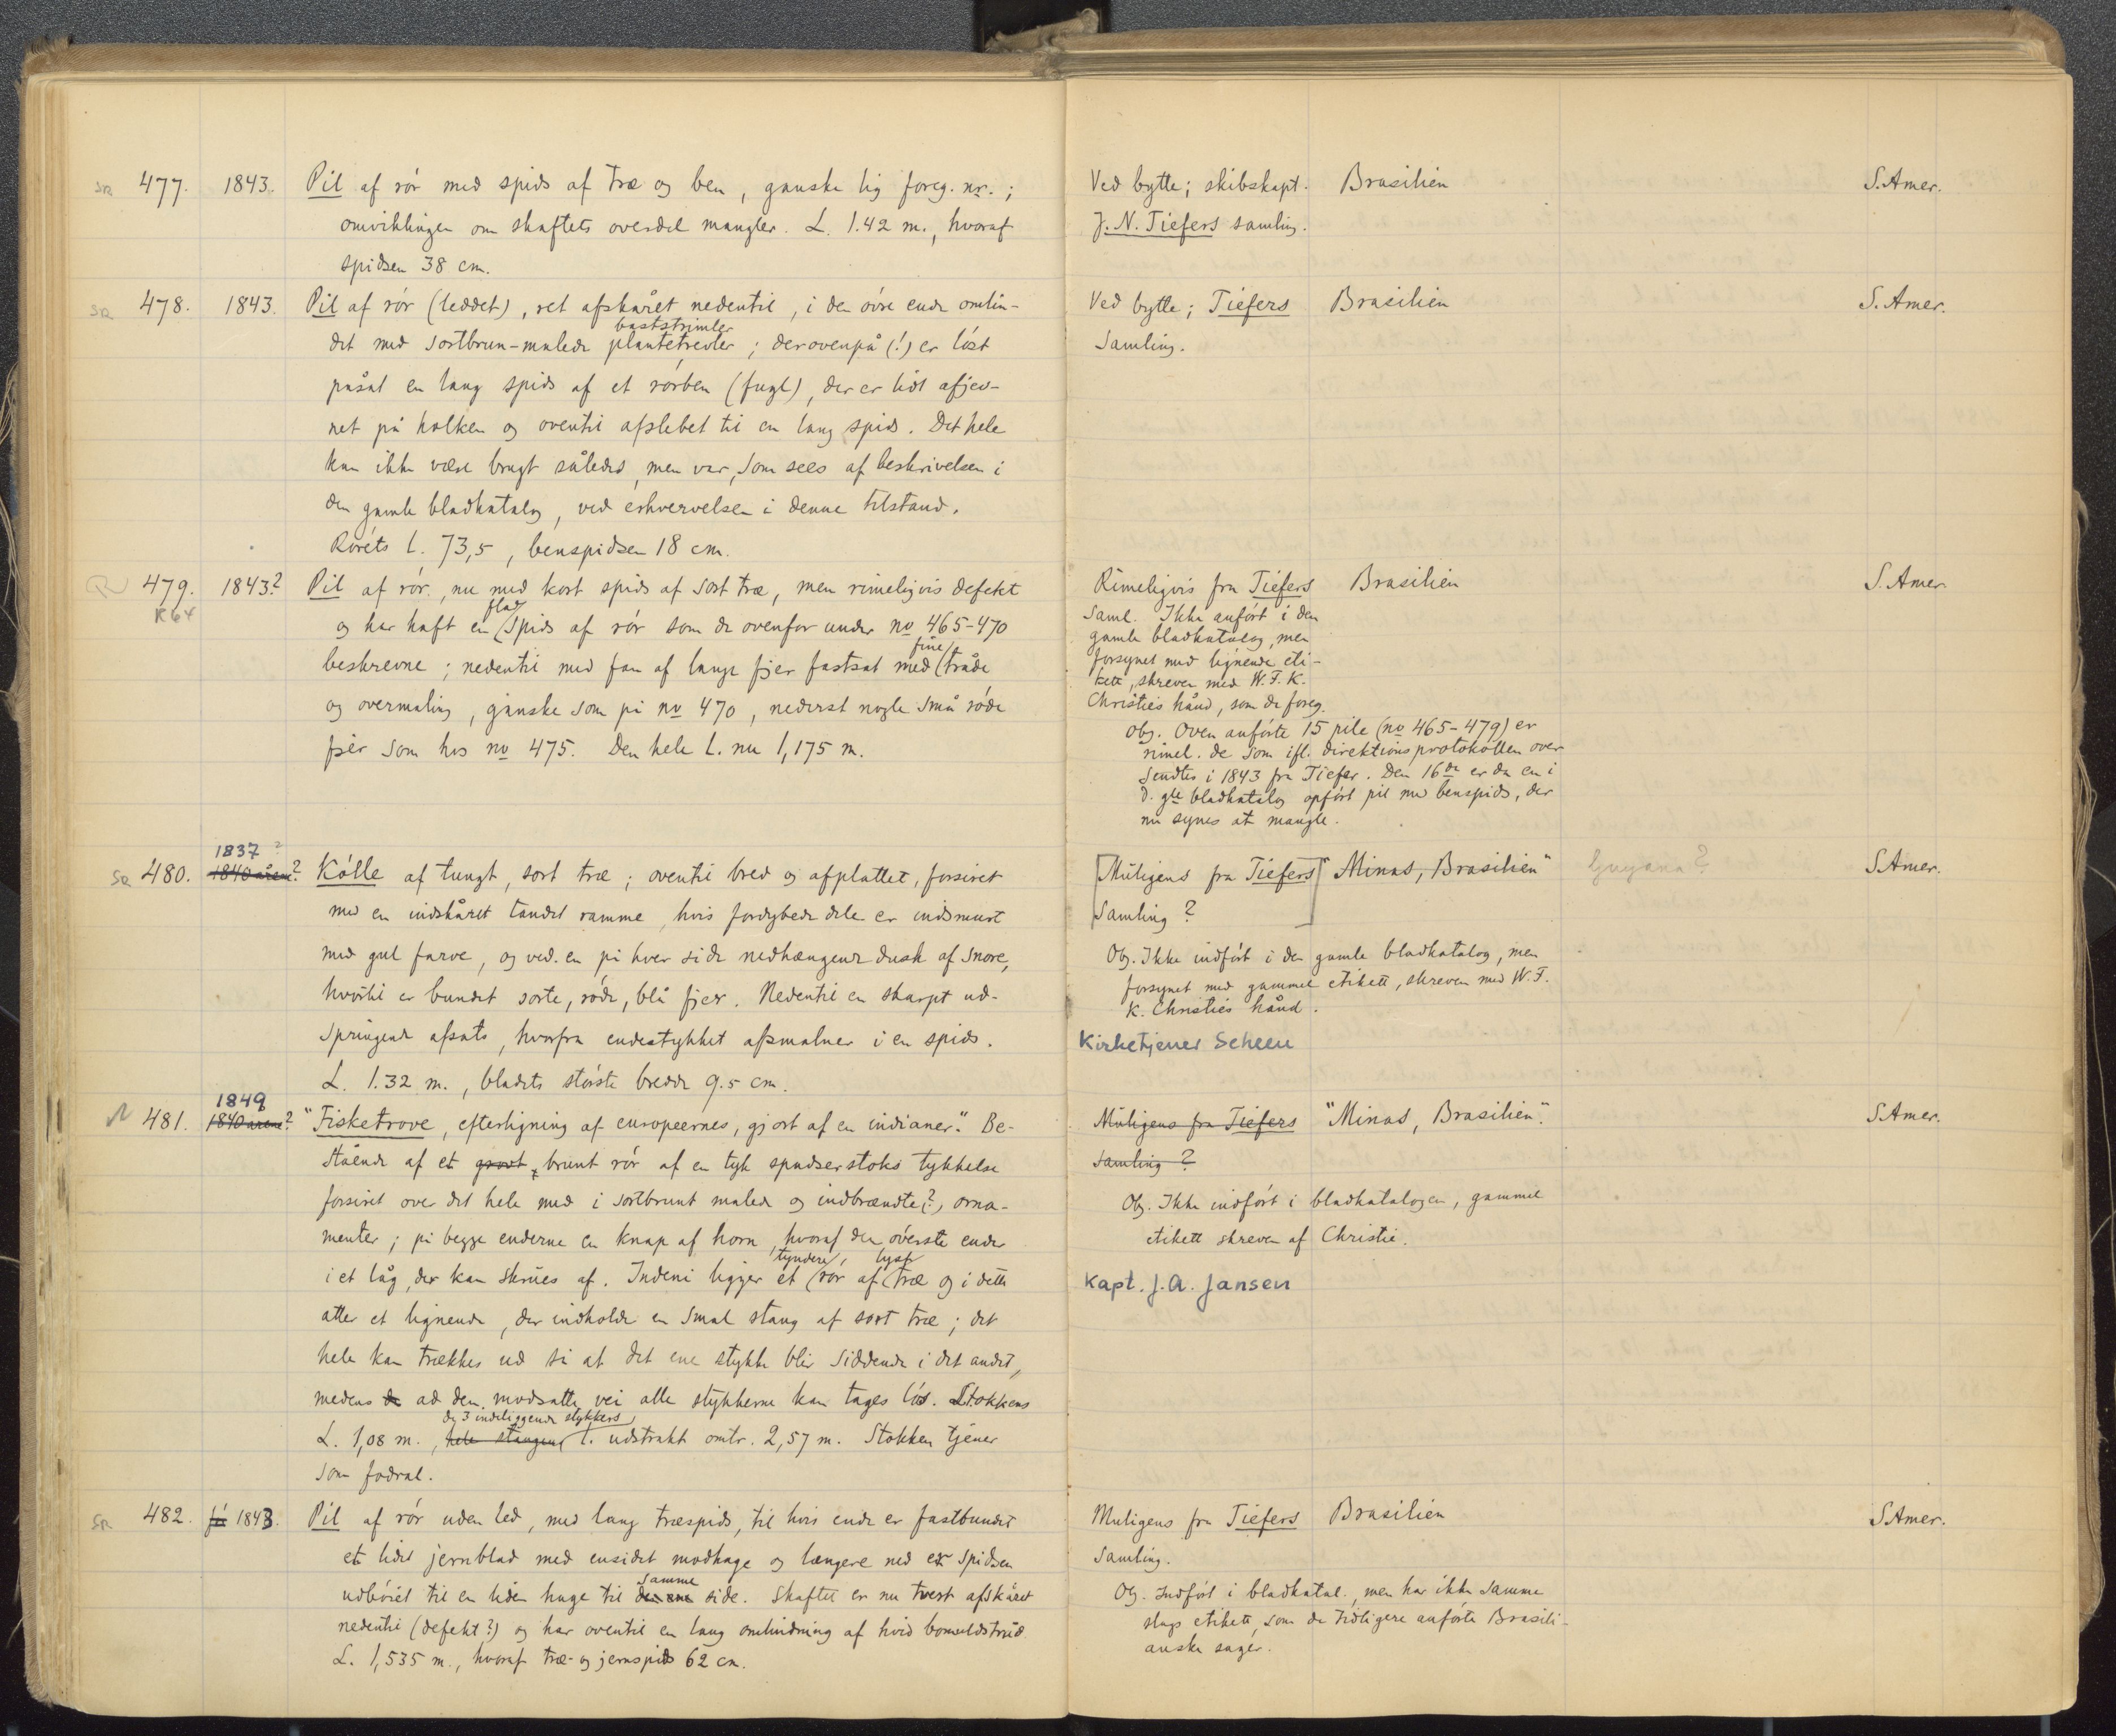 SR 477. 1843. Pil af rór med spids af træ og ben, ganske lig foreg. nr. ;
omviklingen om skaftets overdel mangler. L. 1.42 m., hvoraf
spidsen 38 cm.
Ved bytte; skibskapt. Brasilien S. Amer.
J. N. Tiefers samling.
SR 478. 1843. Pil af rór (leddet), ret afskåret nedentil, i den óvre ende omlin-
det med sortbrun-malede plantetrevler baststrimler ; derovenpå (!) er lóst
påsat en lang spids af et rórben (fugl), der er lidt afjev-
net på holken og oventil afslebet til en lang spids. Det hele
kan ikke være brugt således, men var, som sees af beskrivelsen i
den gamle bladkatalog, ved erhvervelsen i denne tilstand.
Rórets L. 73,5, benspidsen 18 cm.
Ved bytte; Tiefers Brasilien S. Amer.
Samling.
479. 1843? Pil af rór, nu med kort spids af sort træ, men rimeligvis defekt
K64
og har haft en flad spids af rór som de ovenfor under no 465-470
beskrevne ; nedentil med fan af lange fjer fastsat med fine tråde
og overmaling, ganske som på no 470, nederst nogle små róde
fjer som hos no 475. Den hele L. nu 1,175 m.
Rimeligvis fra Tiefers Brasilien S. Amer
Saml. Ikke anfórt i den
gamle bladkatalog, men
forsynet med lignende eti-
kett, skreven med W. F. K.
Christies hånd, som de foreg.
Obs. Oven anfórte 15 pile (no 465-479) er
rimel. de som ifl. direktionsprotokollen over
sendtes i 1843 fra Tiefer. Den 16de er da en i
d. gle bladkatalog opfórt pil med benspids, der
nu synes at mangle.
1837 ?
SR 480. 1840 åren? Kólle af tungt, sort træ ; oventil bred og afplattet, forsiret
med en indskåret tandet ramme, hvis fordybede dele er indsmurt
med gul farve, og ved en på hver side nedhængende dusk af snore,
hvortil er bundet sorte, róde, blå fjer. Nedentil en skarpt ud-
springende afsats, hvorfra endestykket afsmalner i en spids.
L. 1.32 m., bladets stórste bredde 9.5 cm.
Muligens fra Tiefers "Minas, Brasilien" Guyana? S.Amer.
Samling ?
Obs. Ikke indfórt i den gamle bladkatalog, men
forsynet med gammel etikett, skreven med W. F.
K. Christies hånd.
Kirketjener Scheen
1849
481. 1840 årene? "Fisketrove, efterligning af europeernes, gjort af en indianer." Be-
stående af et grovt brunt rór af en tyk spadserstoks tykkelse
forsiret over det hele med i sortbrunt malede og indbrændte(?) orna-
menter ; på begge enderne en knap af horn, hvoraf den óverste ender
i et låg, der kan skrues af. Indeni ligger et tyndere rór af lyst træ og i dette
atter et lignende, der indholder en smal stang af sort træ ; det
hele kan trækkes ud så at det ene stykke blir siddende i det andet,
medens de ad den modsatte vei alle stykkerne kan tages lós. Stokkens
L. 1,08 m., hele stangens de 3 indeliggende stykkers L. udstrakt omtr. 2,57 m. Stokken tjener
som fodral.
Muligens fra Tiefers "Minas, Brasilien". S.Amer.
samling ?
Obs. Ikke indfórt i bladkatalogen, gammel
etikett skreven af Christie.
Kapt. J. A. Jansen
SR 482. 1843. Pil af rór uden led, med lang træspids, til hvis ende er fastbundet
et lidet jernblad med ensidet modhage og længere ned er spidsen
udbóiet til en liden hage til den ene samme side. Skaftet er nu tvert afskåret
nedentil (defekt?) og har oventil en lang omlindning af hvid bomuldstråd
L. 1,535 m., hvoraf træ- og jernspids 62 cm.
Muligens fra Tiefers Brasilien S.Amer.
Samling.
Obs. Indfórt i bladkatal., men har ikke samme
slags etikett, som de tidligere anfórte Brasili-
anske sager.